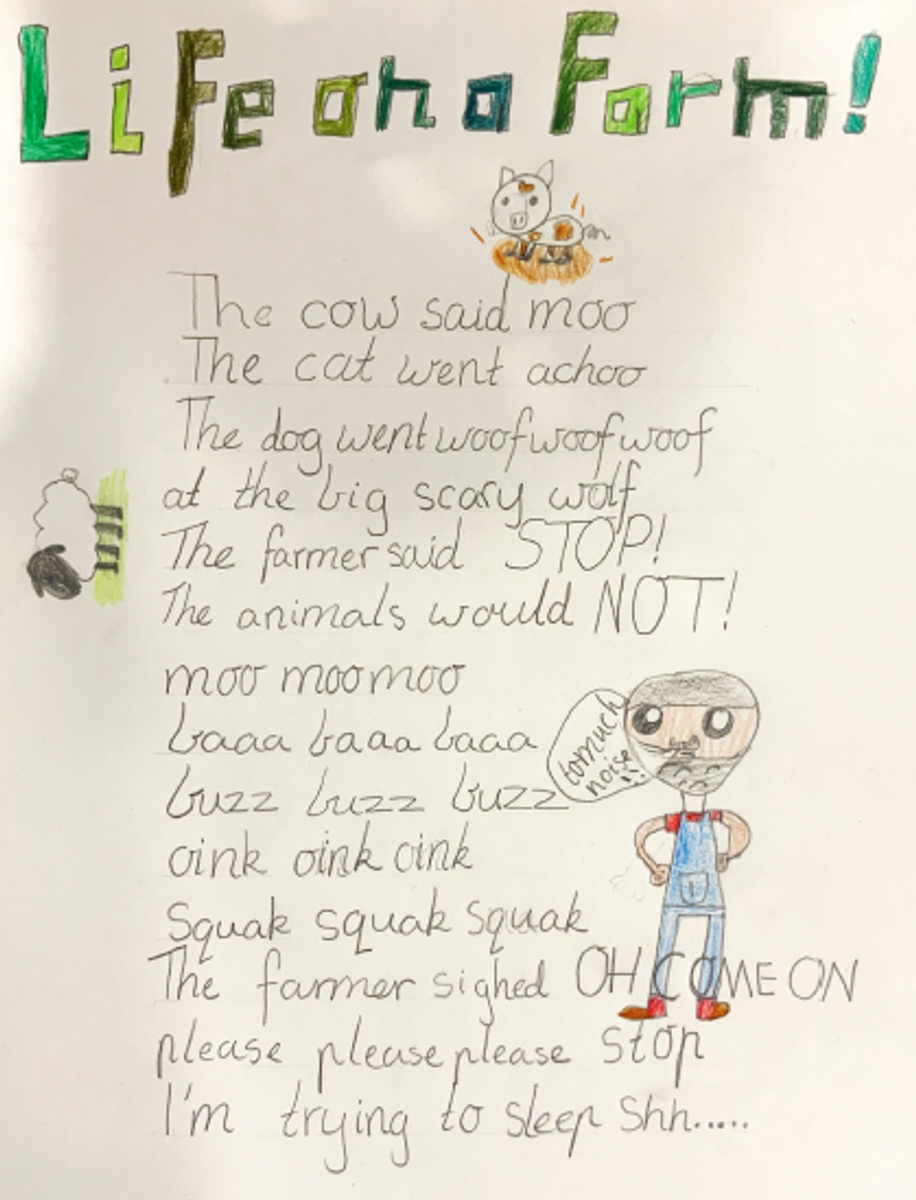 Life on a Farm!
The cow said moo
The cat went achoo
The dog went woof woof woof
at the big scary wolf
The farmer said STOP!
The animals would NOT!
moo moo moo
baaa baaa baaa
to much
noise
buzz buzz buzz
oink oink oink
Squak squak squak
The farmer sighed OH COME ON
please please please stop
I'm trying to sleep shh.....